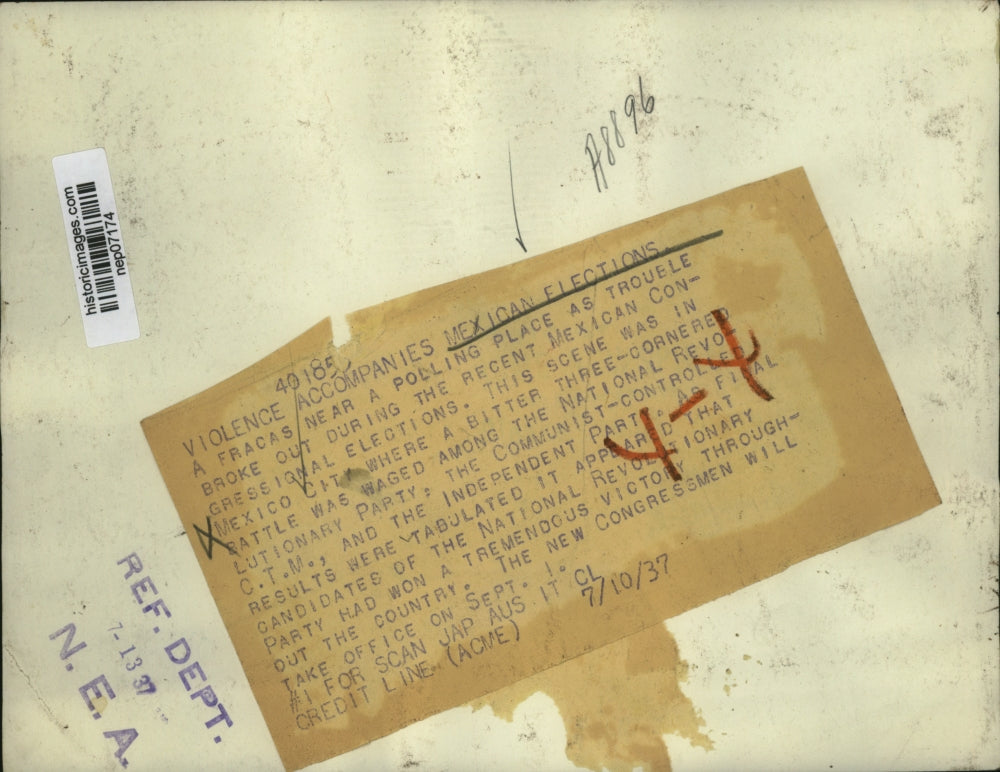 A8896
historicimages.com
nep07174
40185
VIOLENCE ACCOMPANIES MEXICAN ELECTIONS.
A FRACAS NEAR A POLLING PLACE AS TROUBLE
BROKE OUT DURING THE RECENT MEXICAN CON-
GRESSIONAL ELECTIONS. THIS SCENE WAS IN
MEXICO CITY WHERE A BITTER THREE-CORNERED
BATTLE WAS WAGED AMONG THE NATIONAL REVO-
LUTIONARY PARTY; THE COMMUNIST-CONTROLLED
C.T.M., AND THE INDEPENDENT PARTY. AS FINAL
RESULTS WERE TABULATED IT APPEARED THAT
CANDIDATES OF THE NATIONAL REVOLUTIONARY
PARTY HAD WON A TREMENDOUS VICTORY THROUGH-
OUT THE COUNTRY. THE NEW CONGRESSMEN WILL
TAKE OFFICE ON SEPT. 1.
#1 FOR SCAN JAP AUS IT CL
CREDIT LINE (ACME) 7/10/37
REF. DEPT.
7-13 37
N. E. A.